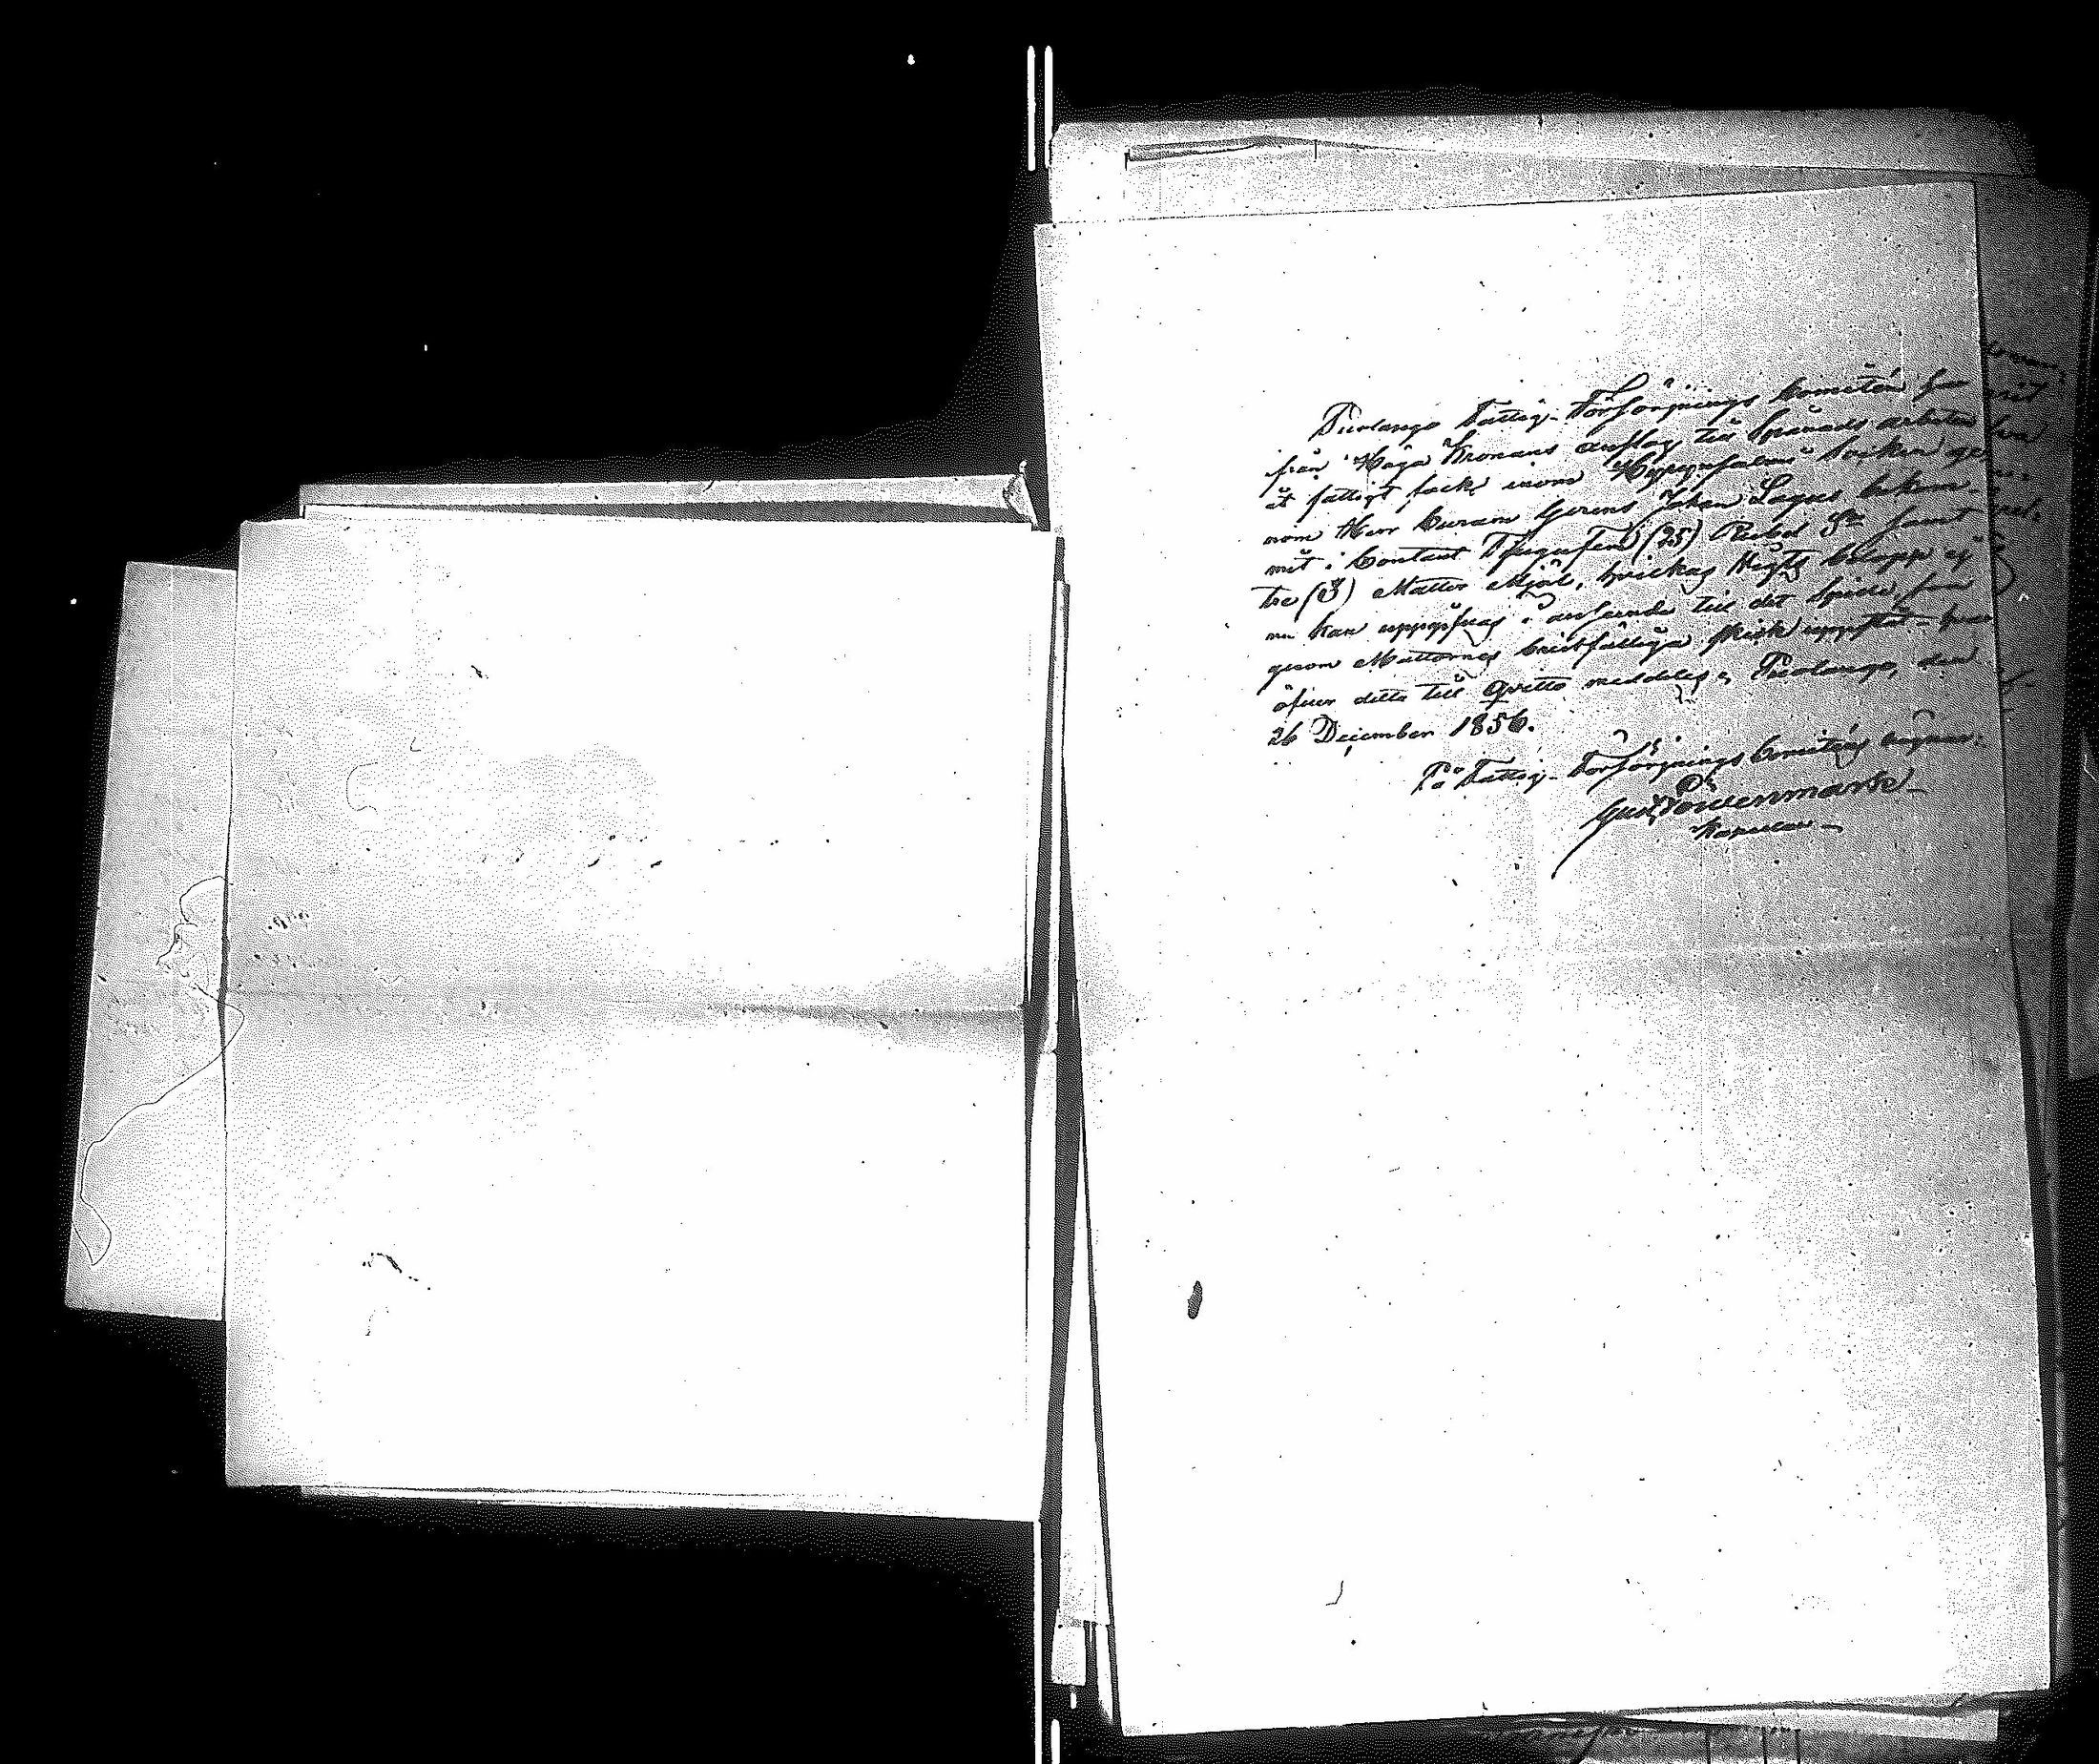 Puolango Fattig-Försörjnings Comitén har
från Höga Kronans anslag till Spånads arbeten
åt fattigt folk inom Hyrynsalmi Socken ge-
nom Herr Curam Gerens Johan Lagus bekom-
mit i Contant Tjugufem (25) Rubel Sr samt
tre (3) Mattor Mjöl, hvilkas vigts belopp ej
nu kan uppgifvas i anseende till det spill, som
genom Mattornes bristfälliga skick uppstått - hvar
öfver detta till Qvitto meddelas, Puolango, den
26 December 1856.
På Fattig-Försörjnings Comiténs vägnar:
Gust.
Kapellan